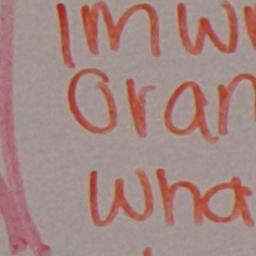 Im wr
Oran
Wha